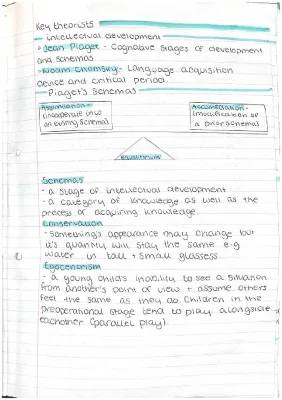 Key theorists
- intellectual development
- Jean Piaget - Cognitive stages of development
and schemas
- Noam Chomsky - Language acquisition
device and critical period.
- Piaget's schemas
Assimilation -
(incorporate into
an existing schema)
Accomodation -
(modification of
a prior schema)
equilibrium
Schemas
- a stage of intellectual development
- a category of knowledge as well as the
process of acquiring knowledge.
Conservation
- something's appearance may change but
it's quantity will stay the same e.g
water in tall + small glasses.
Egocentrism
- a young child's inability to see a situation
from another's point of view + assume others
feel the same as they do. Children in the
preoperational stage tend to play alongside
eachother (parallel play).